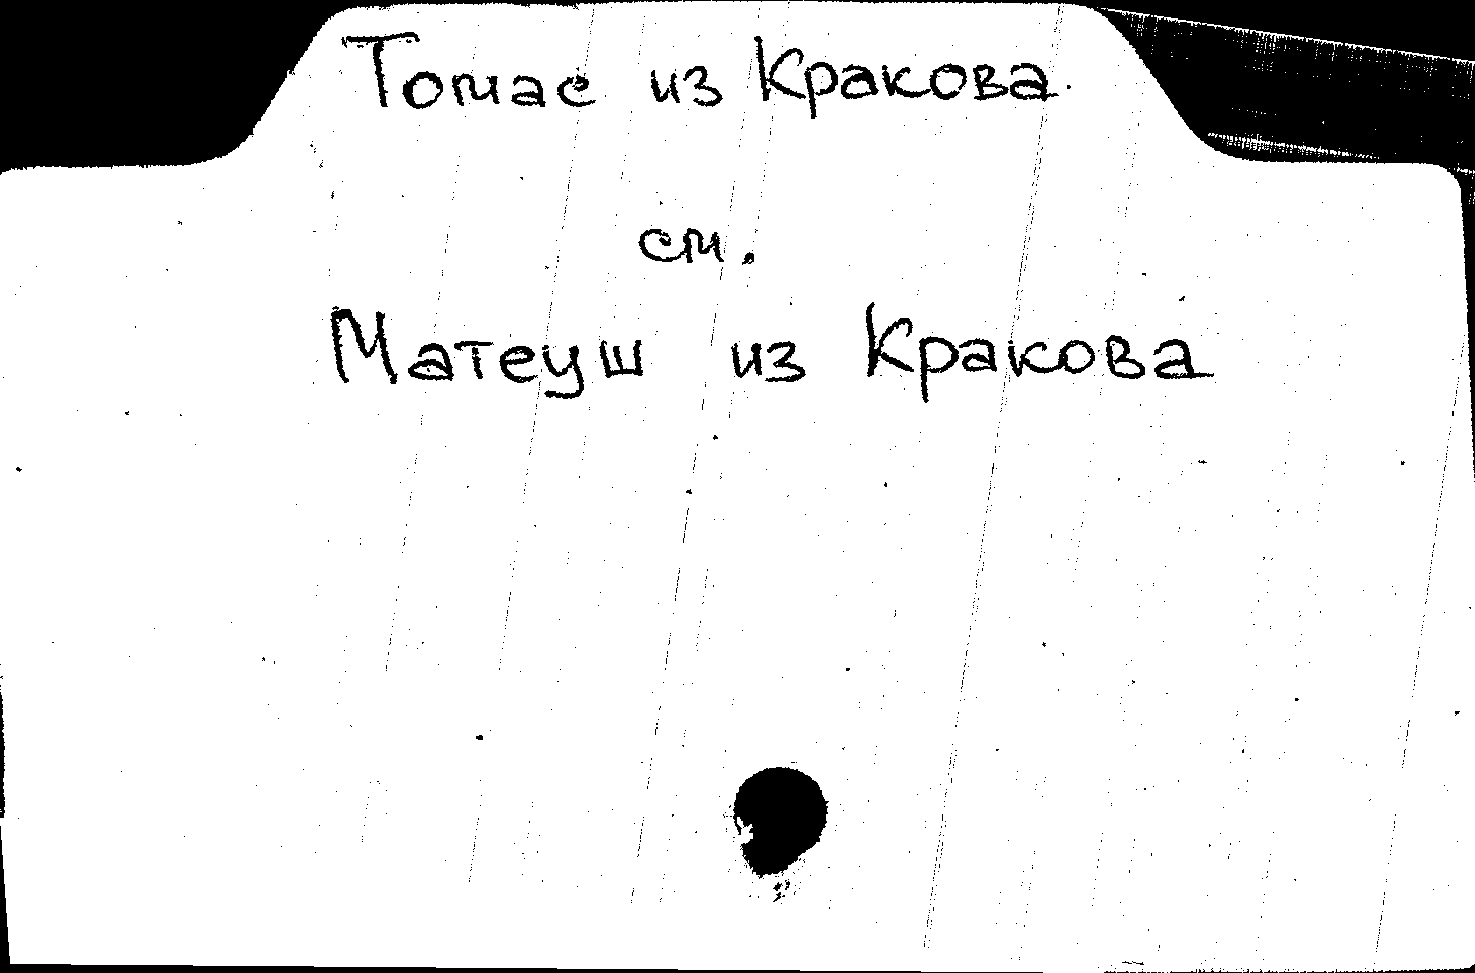 Томас из Кракова.
см.
Матеуш из Кракова